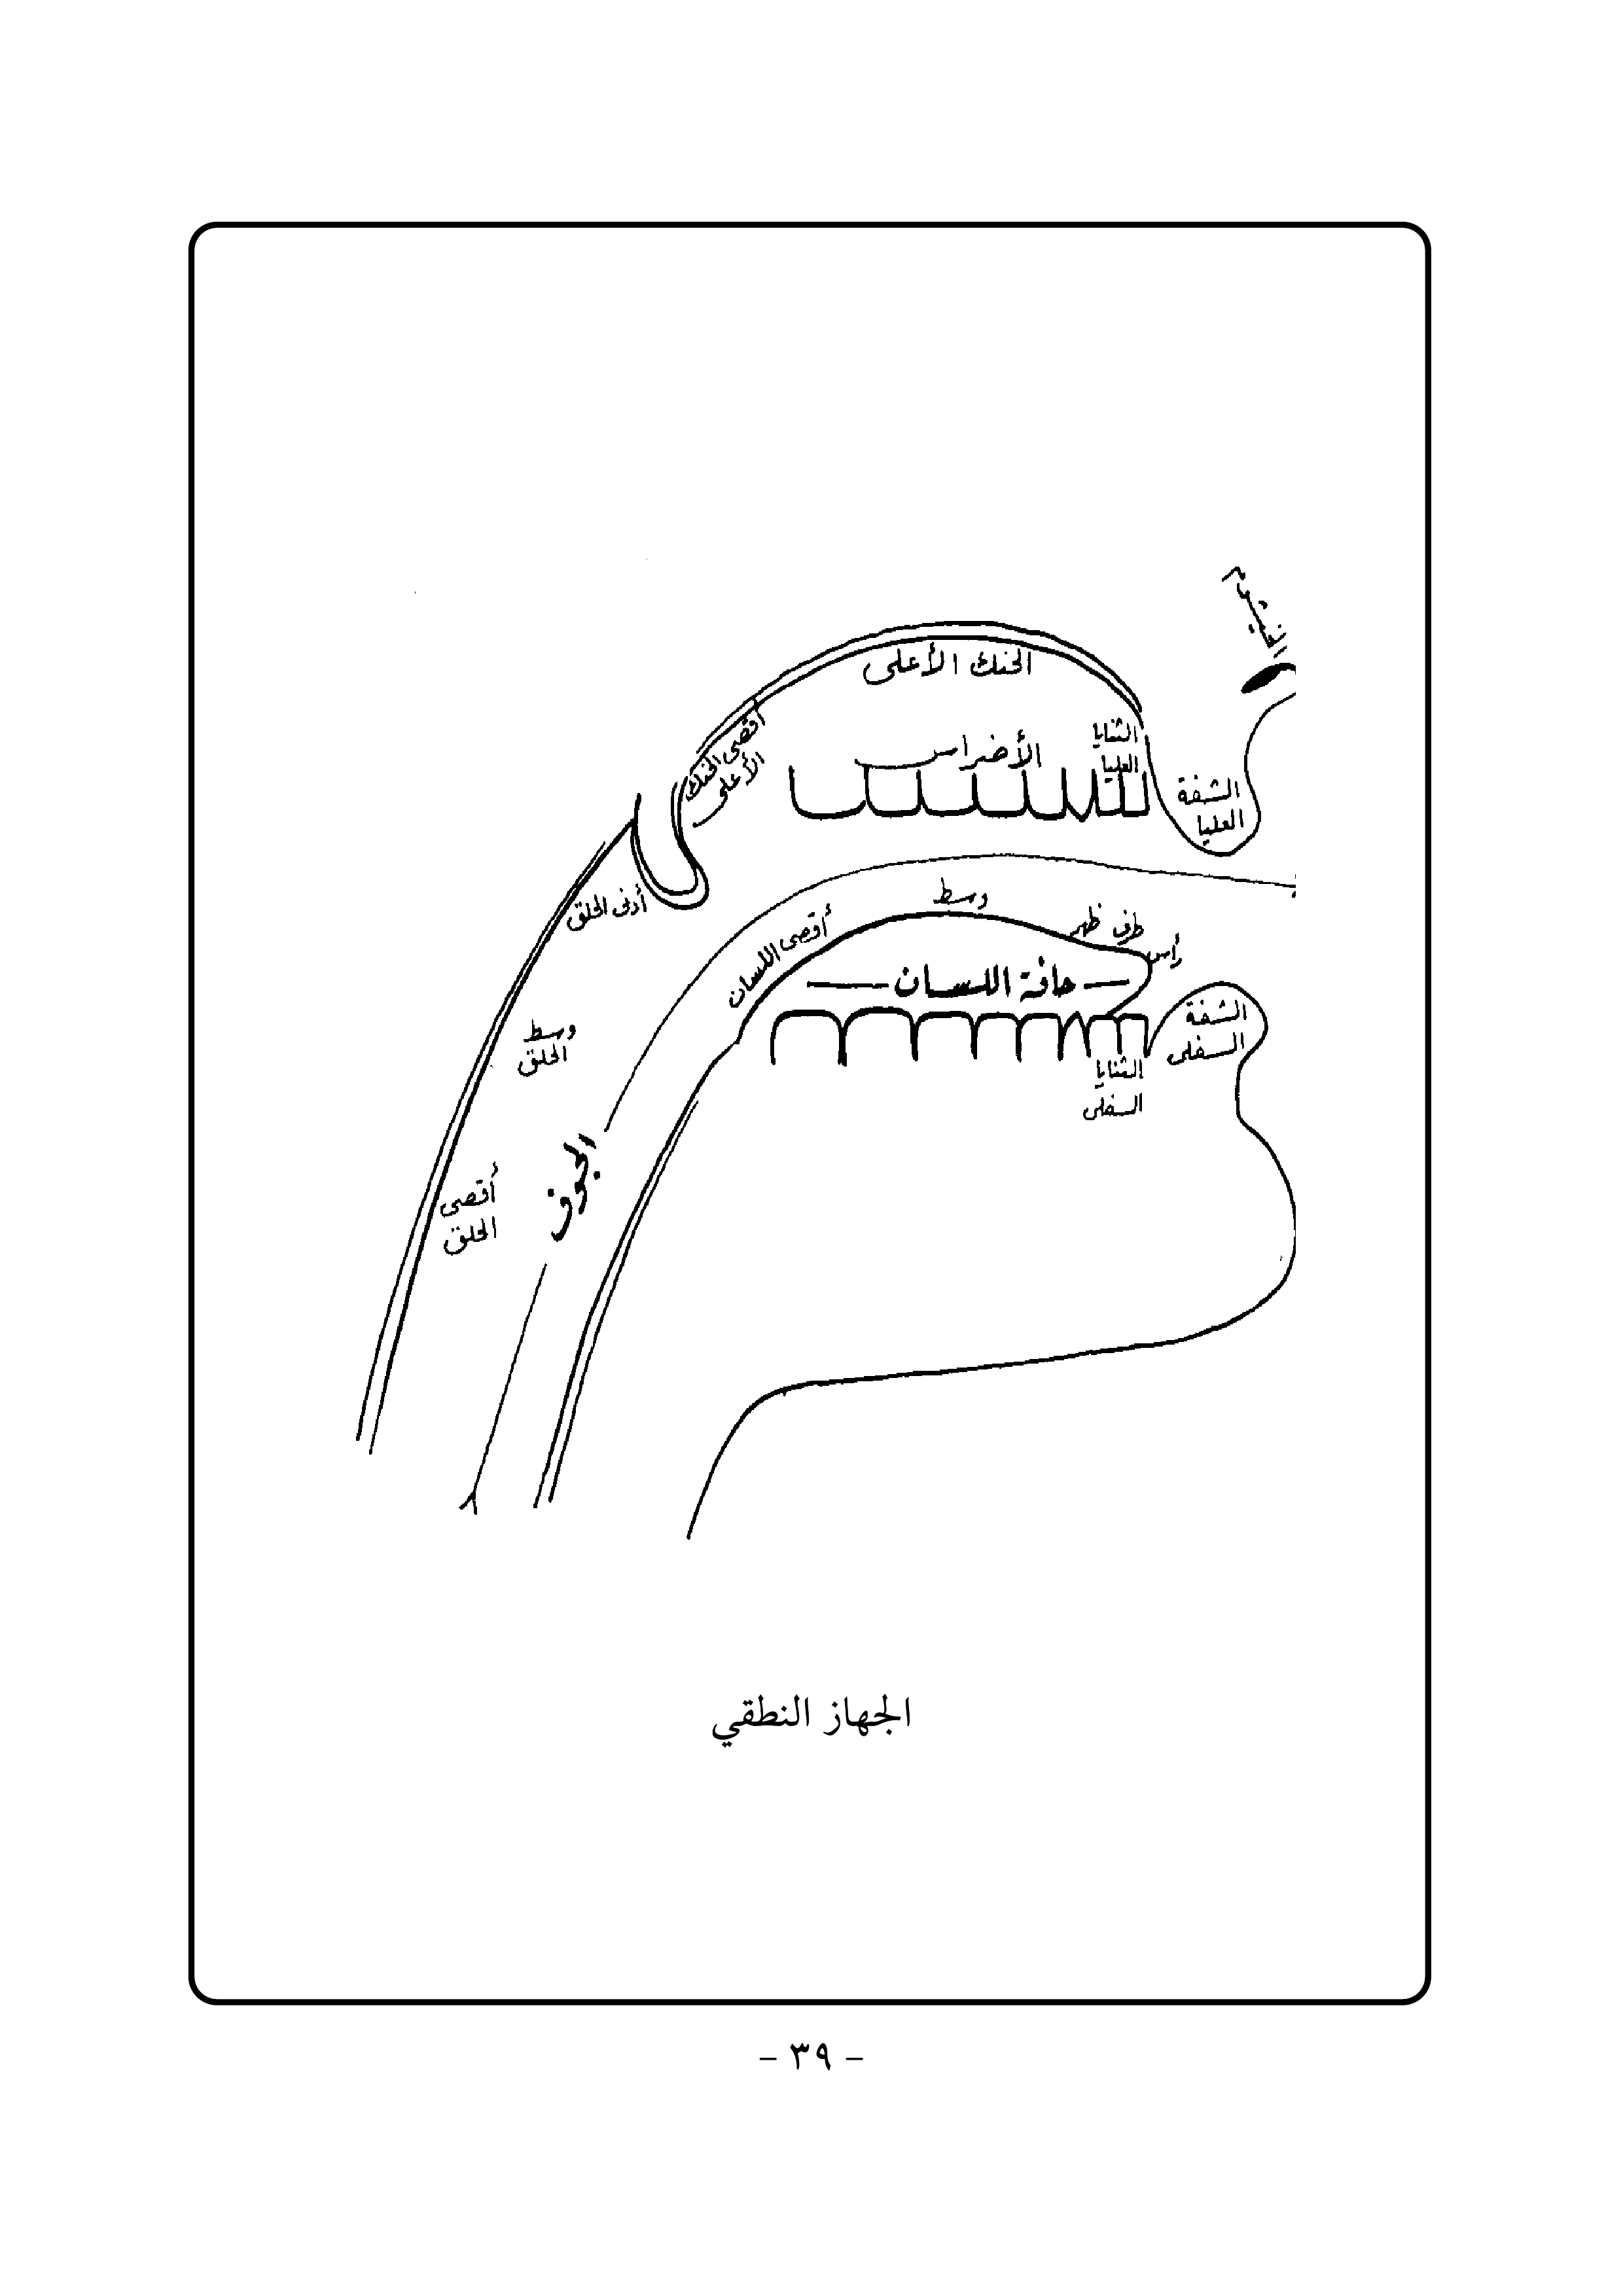 الخيشوم
الحنك الأعلى
أقصى الحنك
الأعلى
الأضراس
الثنايا
العليا
الشفة
العليا
أدنى الحلق
وسط
أقصى اللسان
طرف ظهر
رأس
حافة اللسان
الشفة
السفلى
وسط
الحلق
الثنايا
السفلى
الجوف
أقصى
الحلق
الجهاز النطقي
- ٣٩ -